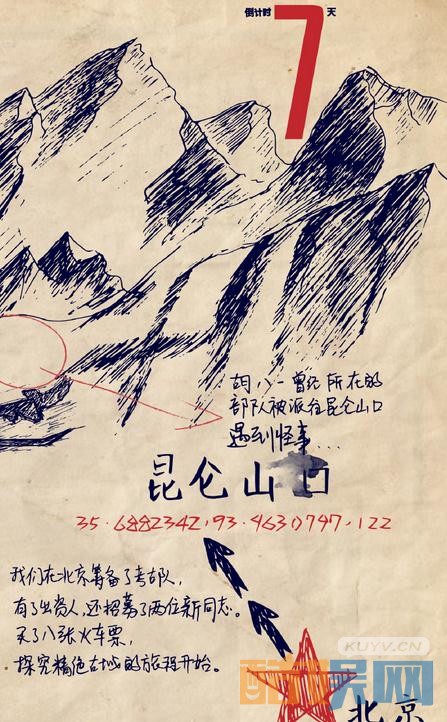 倒计时 7 天
胡八一曾经所在的
部队被派往昆仑山口
遇到怪事...
昆仑山口
35.6882342,93.4630747,122
我们在北京筹备了考古队,
有了出资人,还招募了两位新同志。
买了八张火车票,
探究精绝古城的旅程开始。
KUYV.CN
酷娱网
北京